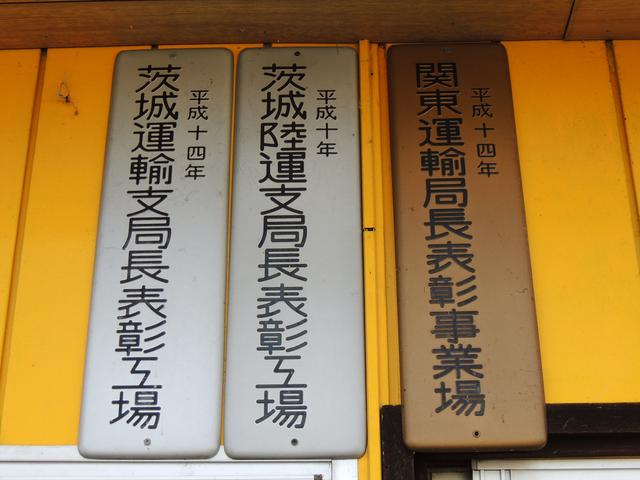 平成十四年
関東運輸局長表彰事業場
平成十年
茨城陸運支局長表彰工場
平成十四年
茨城運輸支局長表彰工場